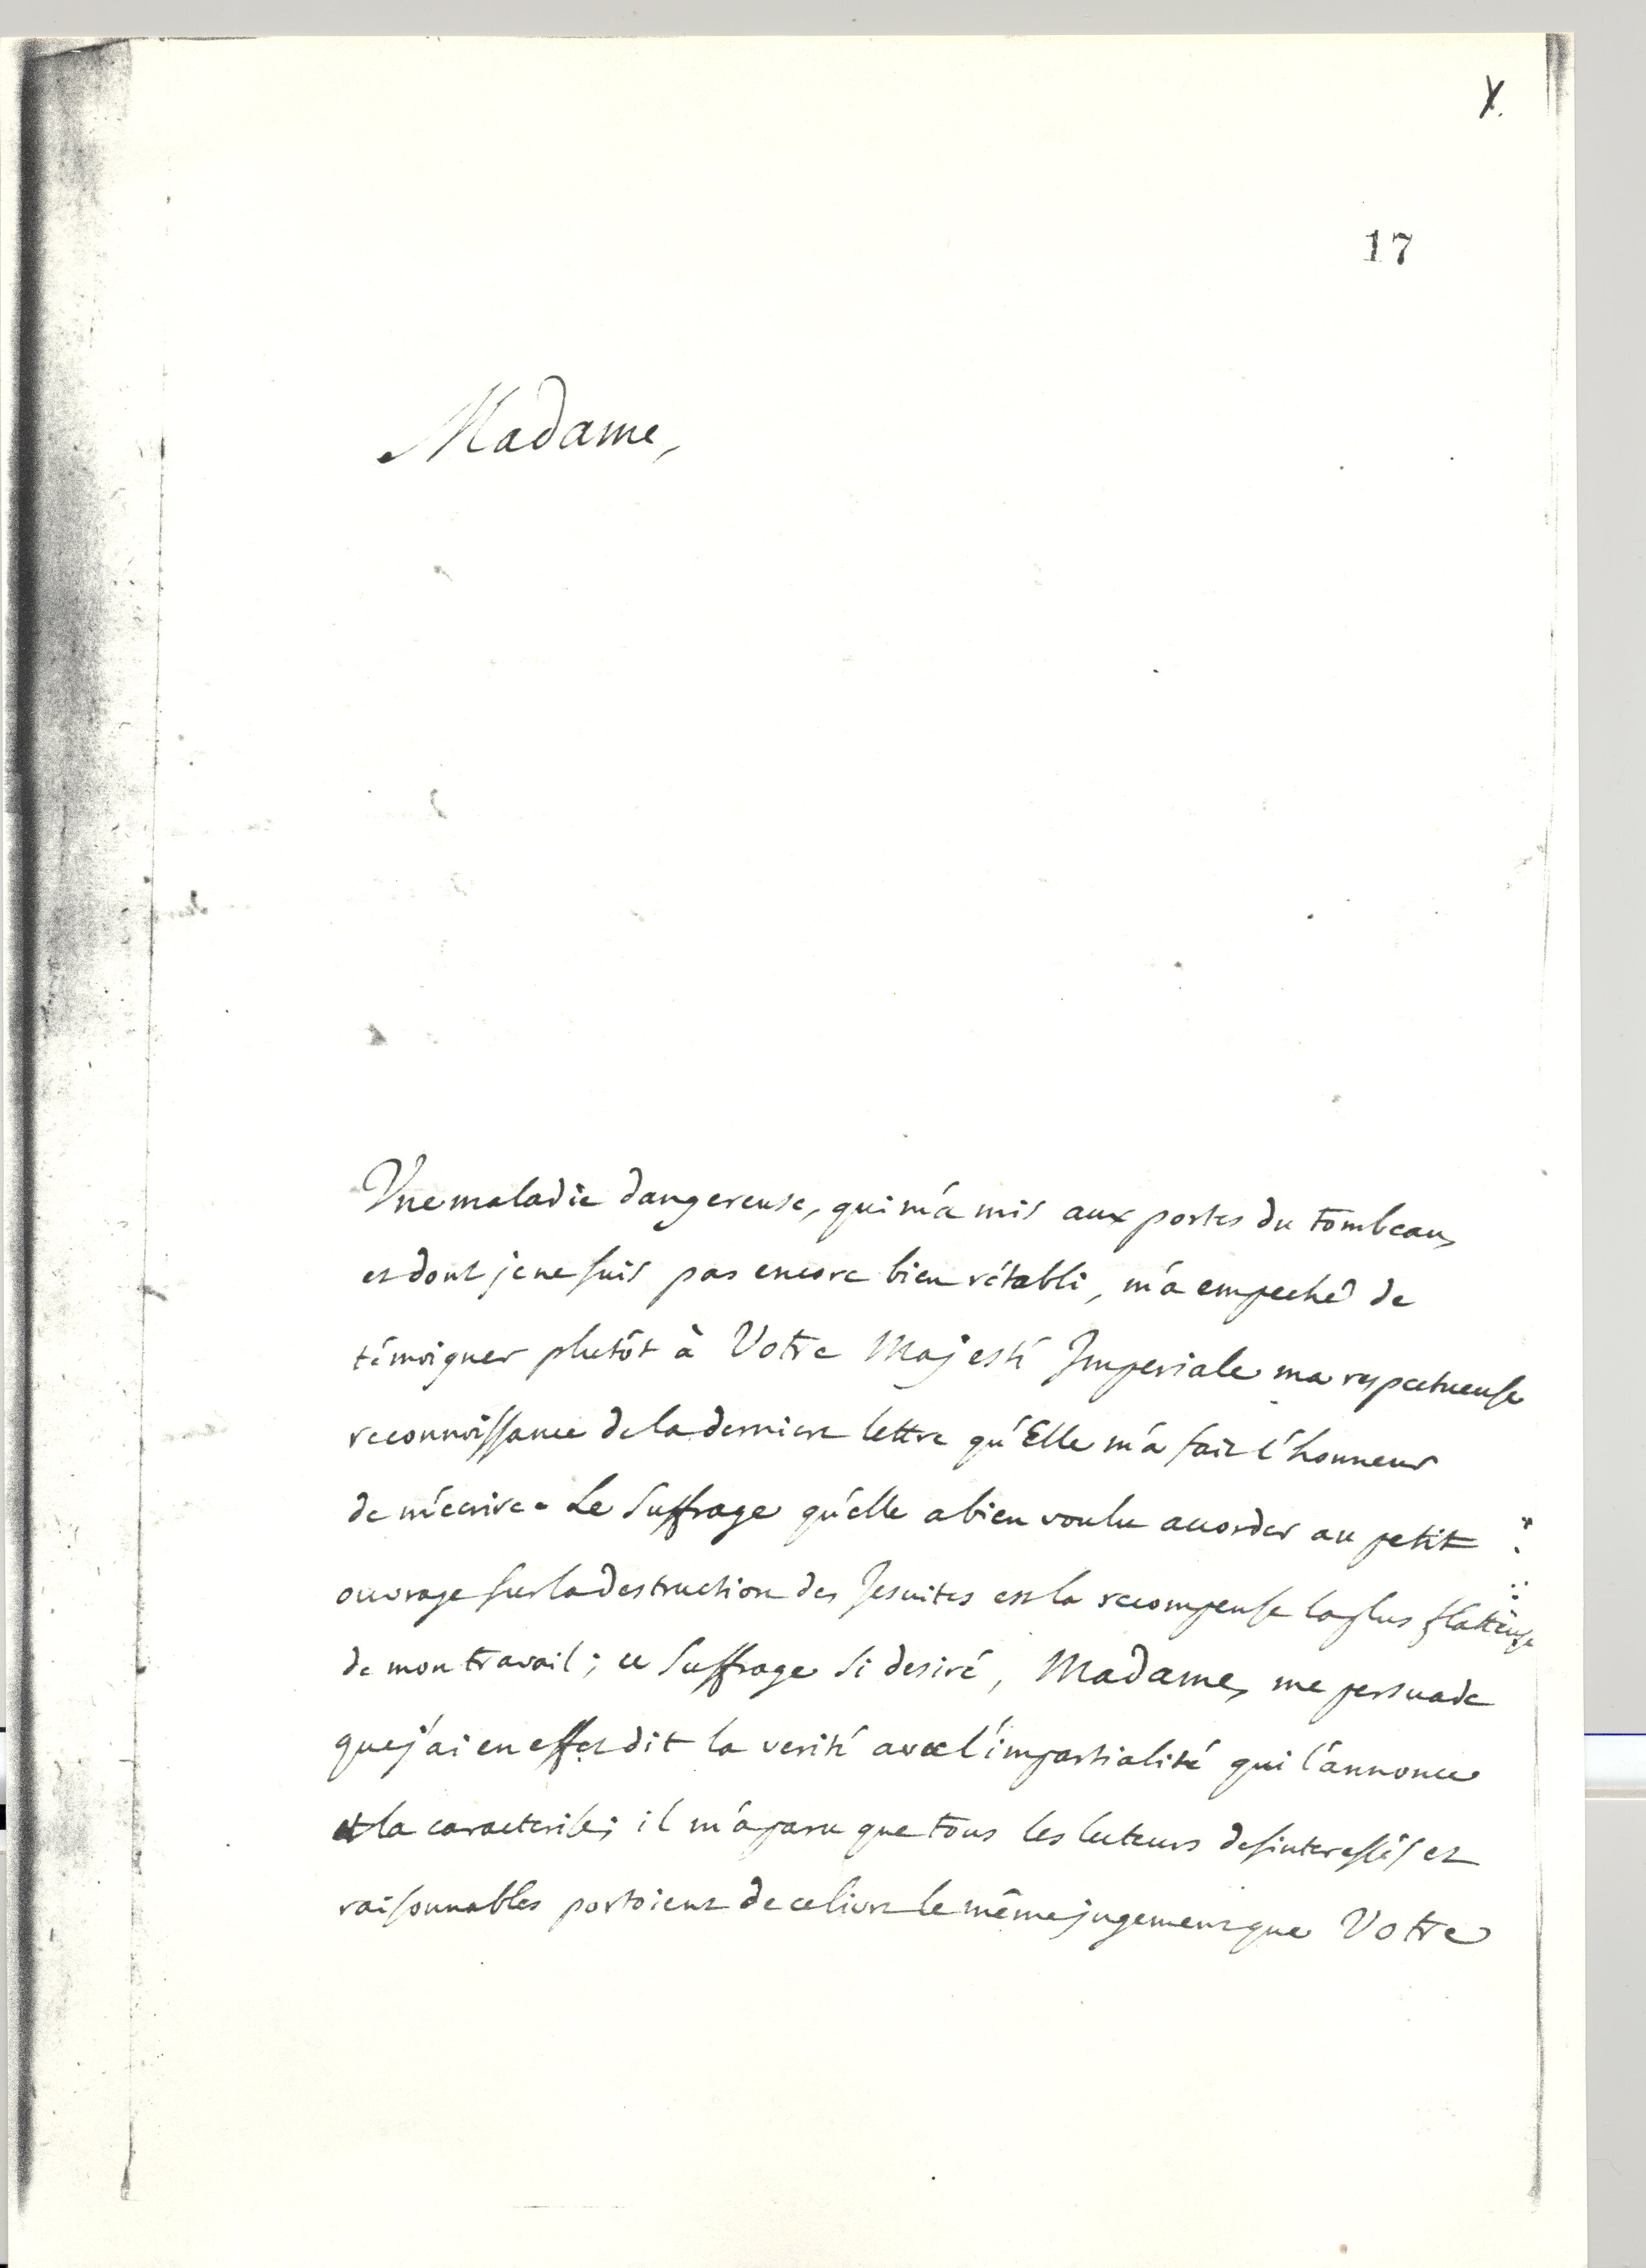 X.
17
Madame,
Une maladie dangereuse, qui m'a mis aux portes du tombeau,
et dont je ne suis pas encore bien rétabli, m'a empeché de
témoigner plutôt à Votre Majesté Imperiale ma respectueuse
reconnoissance de la derniere lettre qu'Elle m'a fait l'honneur
de m'écrire. Le suffrage qu'elle a bien voulu accorder au petit
ouvrage sur la destruction des Jesuites est la recompense la plus flatteuse
de mon travail; ce suffrage si desiré, Madame, me persuade
que j'ai en effet dit la verité avec l'impartialité qui l'annonce
et la caracterise; il m'a paru que tous les lecteurs desinteressés et
raisonnables portoient de ce livre le même jugement que Votre